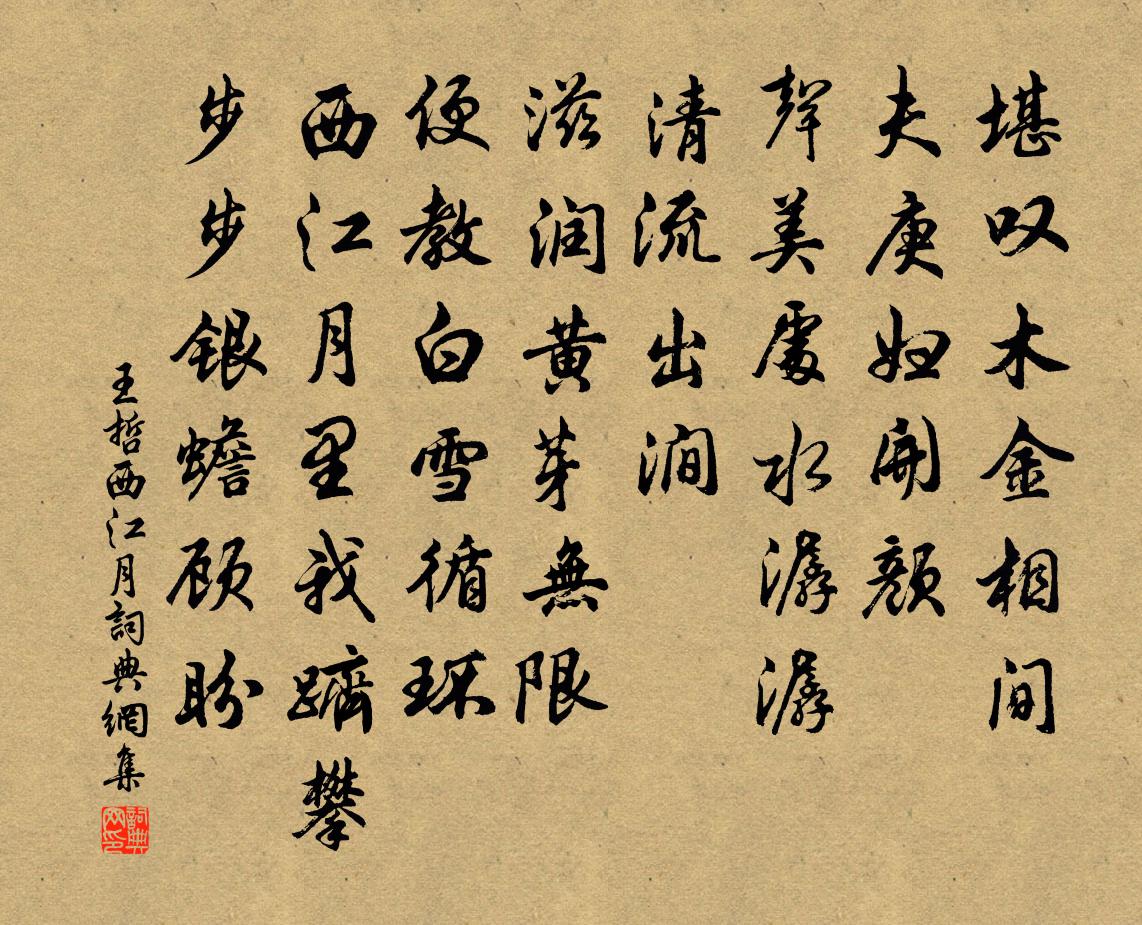 堪叹木金相间
夫庚妇開颜
聲美處水潺潺
清流出涧
滋润黄芽無限
便教白雪循环
西江月里我躋攀
步步银蟾顾盼
王哲西江月詞典網集
詞典网印